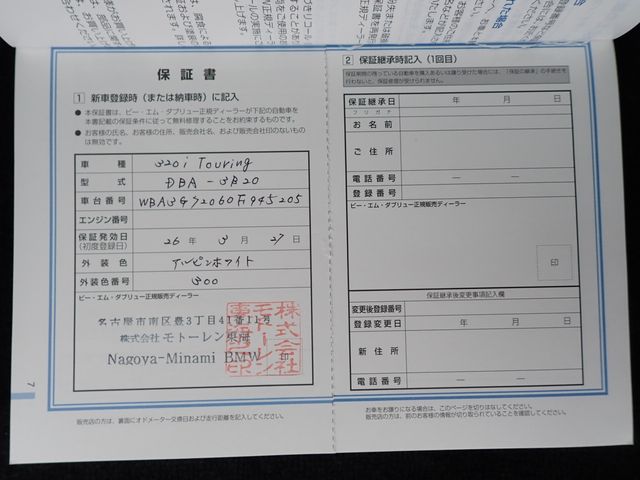 保証書
1 新車登録時(または納車時)に記入
● 本保証書は、ビー・エム・ダブリュー正規ディーラーが下記の自動車を
本書記載の保証条件に従って無料修理することをお約束するものです。
● お客様の氏名、お客様の住所、販売会社名、および販売会社印のないもの
は無効です。
車種 320i Touring
型式 DBA-3B20
車台番号 WBA3G72060F945205
エンジン番号
保証発効日 26年 3月 27日
(初度登録日)
外装色 アルピンホワイト
外装色番号 300
ビー・エム・ダブリュー正規販売ディーラー
名古屋市南区豊3丁目41番11号
株式会社 モトーレン東海
Nagoya-Minami BMW 印
販売店の方は、裏面にオドメーター交換日および走行距離を記入してください。
7
2 保証継承時記入(1回目)
保証期間の残っている自動車を購入あるいは譲り受けた場合には、「保証の継承」の手続きを
行わないと、保証修理が受けられません。
保証継承日 年 月 日
フリガナ
お名前
ご住所
電話番号 — —
登録番号
ビー・エム・ダブリュー正規販売ディーラー
印
保証継承後変更事項記入欄
変更後登録番号
登録変更日 年 月 日
新住所
電話番号 — —
お車をお譲りになる場合は、このページを切りはなしてください。
販売店の方は、前のお客様の情報が切り取られていることを確認してください。